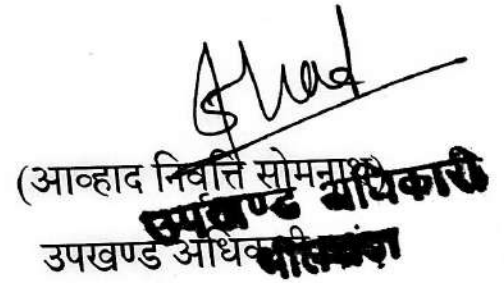 (आव्हाद निर्वात्ति सोमनाथ)
उपखण्ड अधिकारी
उपखण्ड अधिकारी